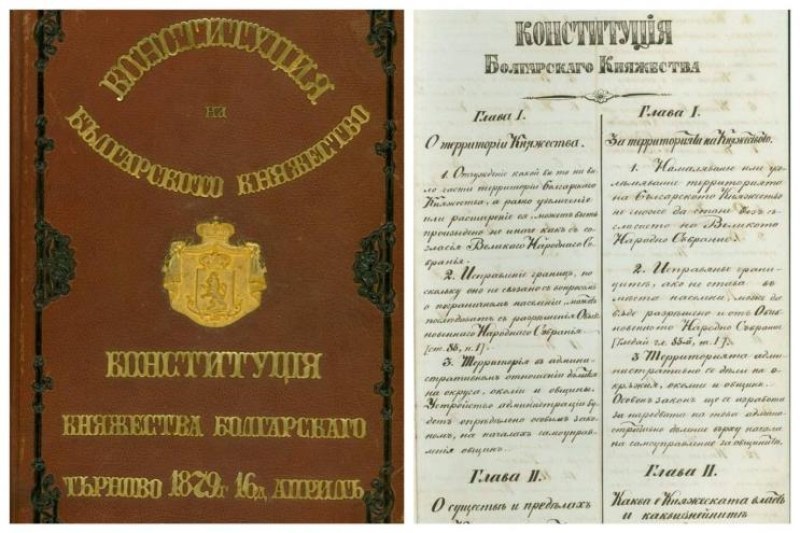 КОНСТИТУЦИЯ
НА
БЪЛГАРСКОТО КНЯЖЕСТВО
КОНСТИТУЦІЯ
КНЯЖЕСТВА БОЛГАРСКАГО
ТЪРНОВО 1879г 16д. АПРИЛЪ
КОНСТИТУЦІЯ
БОЛГАРСКАГО КНЯЖЕСТВА
Глава I.
О территоріи Княжества.
1. Отчужденіе какой бы то ни бы
ло части территоріи Болгарскаго
Княжества, а равно уменьшеніе
или расширеніе ея, можетъ быть
произведено не иначе какъ съ со-
гласія Великаго Народнаго Со-
бранья.
2. Исправленіе границъ, по
скольку оно не связано съ вопросомъ
о пограничномъ населеніи, можетъ
последовать съ разрешенія Обык
новеннаго Народнаго Собранія
[ст. 85, п. 1].
3. Территорія въ админи-
стративномъ отношеніи делится
на округа, околіи и общины.
Устройство администраціи бу
детъ определено особымъ зако
номъ, на началахъ самоуправ
ленія общинъ.
Глава II.
О существѣ и предѣлахъ
Глава I.
За територията на Княжеството.
1. Намаляванье или уго
лемяванье территорията
на Българското Княжество
не може да стане безъ съ
гласието на Великото
Народно Събрание.
2. Исправянье грани-
цитѣ, ако не става въ
места населени, може да
бѫде разрешено и отъ Обик
новенното Народно Събрание
3. Територията адми-
нистративно се дѣли на о-
крѫжия, околии и общини.
Особенъ законъ ще се изработи
за наредбата на това админи
стративно деление върху начала
на самоуправление за общинитѣ.
Глава II.
Каква е Княжеската власть
и какви